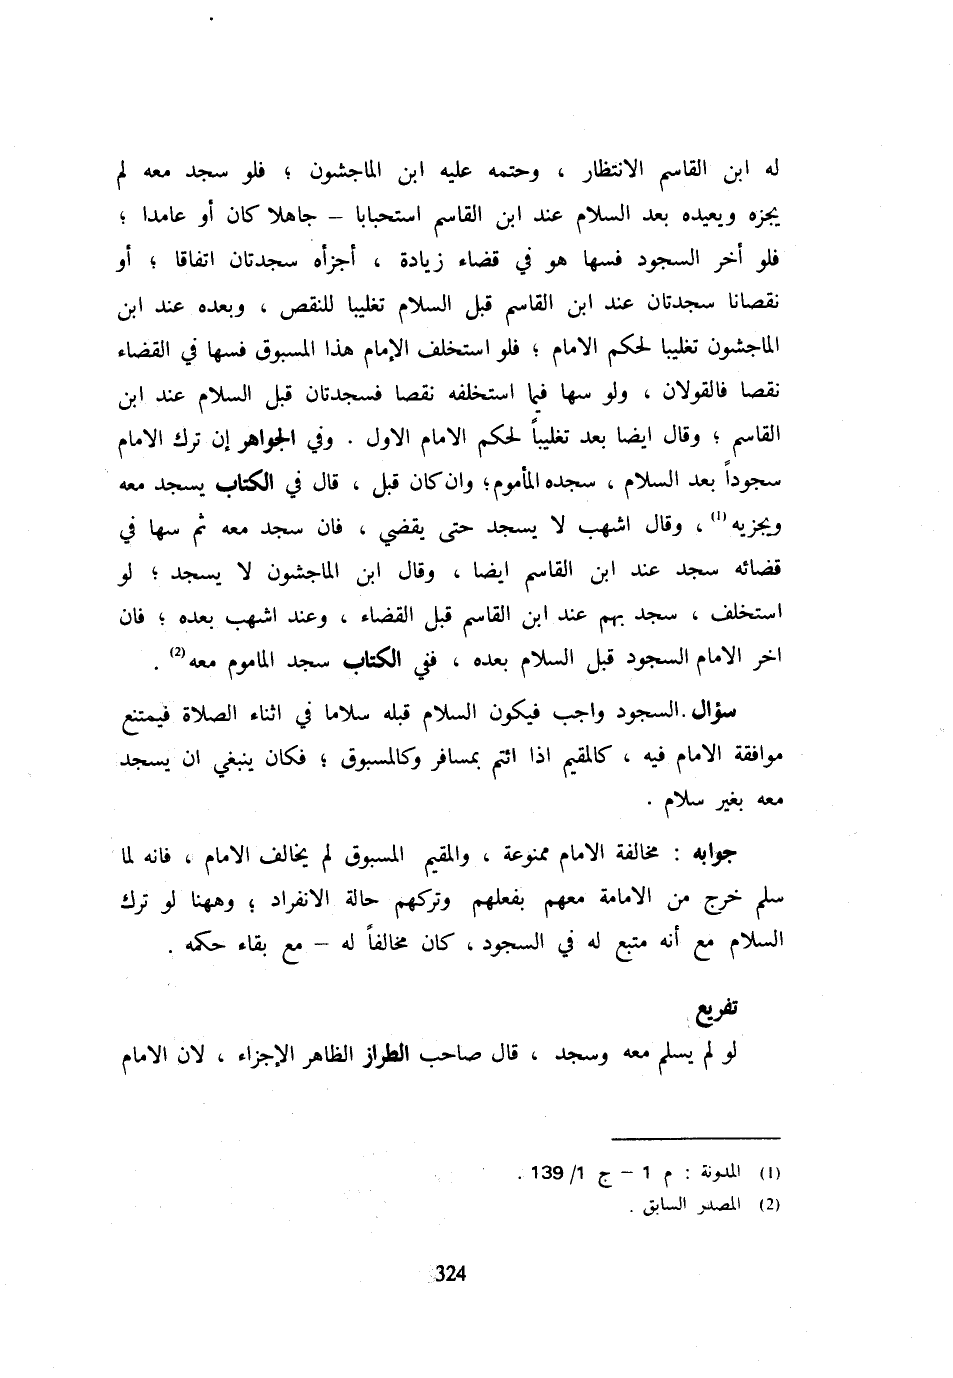 له ابن القاسم الانتظار ، وحتمه عليه ابن الماجشون ؛ فلو سجد معه لم
يجزه ويعيده بعد السلام عند ابن القاسم استحبابا – جاهلا كان أو عامدا ؛
فلو أخر السجود فسها هو في قضاء زيادة ، أجزأه سجدتان اتفاقا ؛ أو
نقصانا سجدتان عند ابن القاسم قبل السلام تغليبا للنقص ، وبعده عند ابن
الماجشون تغليبا لحكم الامام ؛ فلو استخلف الإمام هذا المسبوق فسها في القضاء
نقصا فالقولان ، ولو سها فيما استخلفه نقصا فسجدتان قبل السلام عند ابن
القاسم ؛ وقال ايضا بعد تغليباً لحكم الامام الاول . وفي الجواهر إن ترك الامام
سجوداً بعد السلام ، سجده المأموم؛ وان كان قبل ، قال في الكتاب يسجد معه
ويجزيه (1) ، وقال اشهب لا يسجد حتى يقضي ، فان سجد معه ثم سها في
قضائه سجد عند ابن القاسم ايضا ، وقال ابن الماجشون لا يسجد ؛ لو
استخلف ، سجد بهم عند ابن القاسم قبل القضاء ، وعند اشهب بعده ؛ فان
اخر الامام السجود قبل السلام بعده ، ففي الكتاب سجد الماموم معه (2) .
سؤال .السجود واجب فيكون السلام قبله سلاما في اثناء الصلاة فيمتنع
موافقة الامام فيه ، كالمقيم اذا ائتم بمسافر وكالمسبوق ؛ فكان ينبغي ان يسجد
معه بغير سلام .
جوابه : مخالفة الامام ممنوعة ، والمقيم المسبوق لم يخالف الامام ، فانه لما
سلم خرج من الامامة معهم بفعلهم وتركهم حالة الانفراد ؛ وههنا لو ترك
السلام مع أنه متبع له في السجود ، كان مخالفاً له – مع بقاء حكمه .
تفريع
لو لم يسلم معه وسجد ، قال صاحب الطراز الظاهر الإجزاء ، لان الامام
(1) المدونة : م 1 – ج 1/ 139 .
(2) المصدر السابق .
324